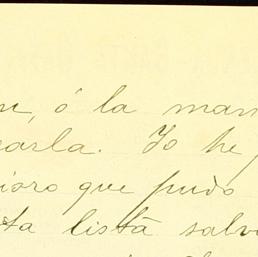 ó la man
arla. Yo he
ioro que pudo
ta lista salv